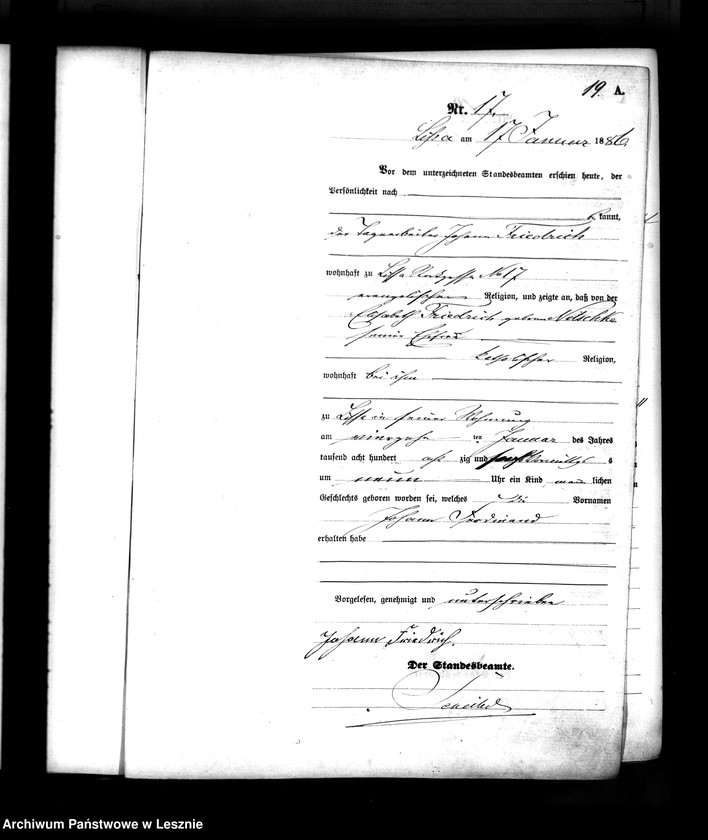 19. A.
Nr. 17.
Lissa am 17 Januar 1886.
Vor dem unterzeichneten Standesbeamten erschien heute, der
Persönlichkeit nach
be kannt,
der Tagearbeiter Johann Friedrich
wohnhaft zu Lissa No 17
evangelischer Religion, und zeigte an, daß von der
Elisabeth Friedrich geborne Nitschke
seiner Ehefrau
katholischer Religion,
wohnhaft bei ihm
zu Lissa in seiner Wohnung
am vierzehn ten Januar des Jahres
tausend acht hundert acht zig und sechs Vormittags
um neun Uhr ein Kind männ lichen
Geschlechts geboren worden sei, welches die Vornamen
Johann Ferdinand
erhalten habe
Vorgelesen, genehmigt und unterschrieben
Johann Friedrich.
Der Standesbeamte.
Archiwum Państwowe w Lesznie